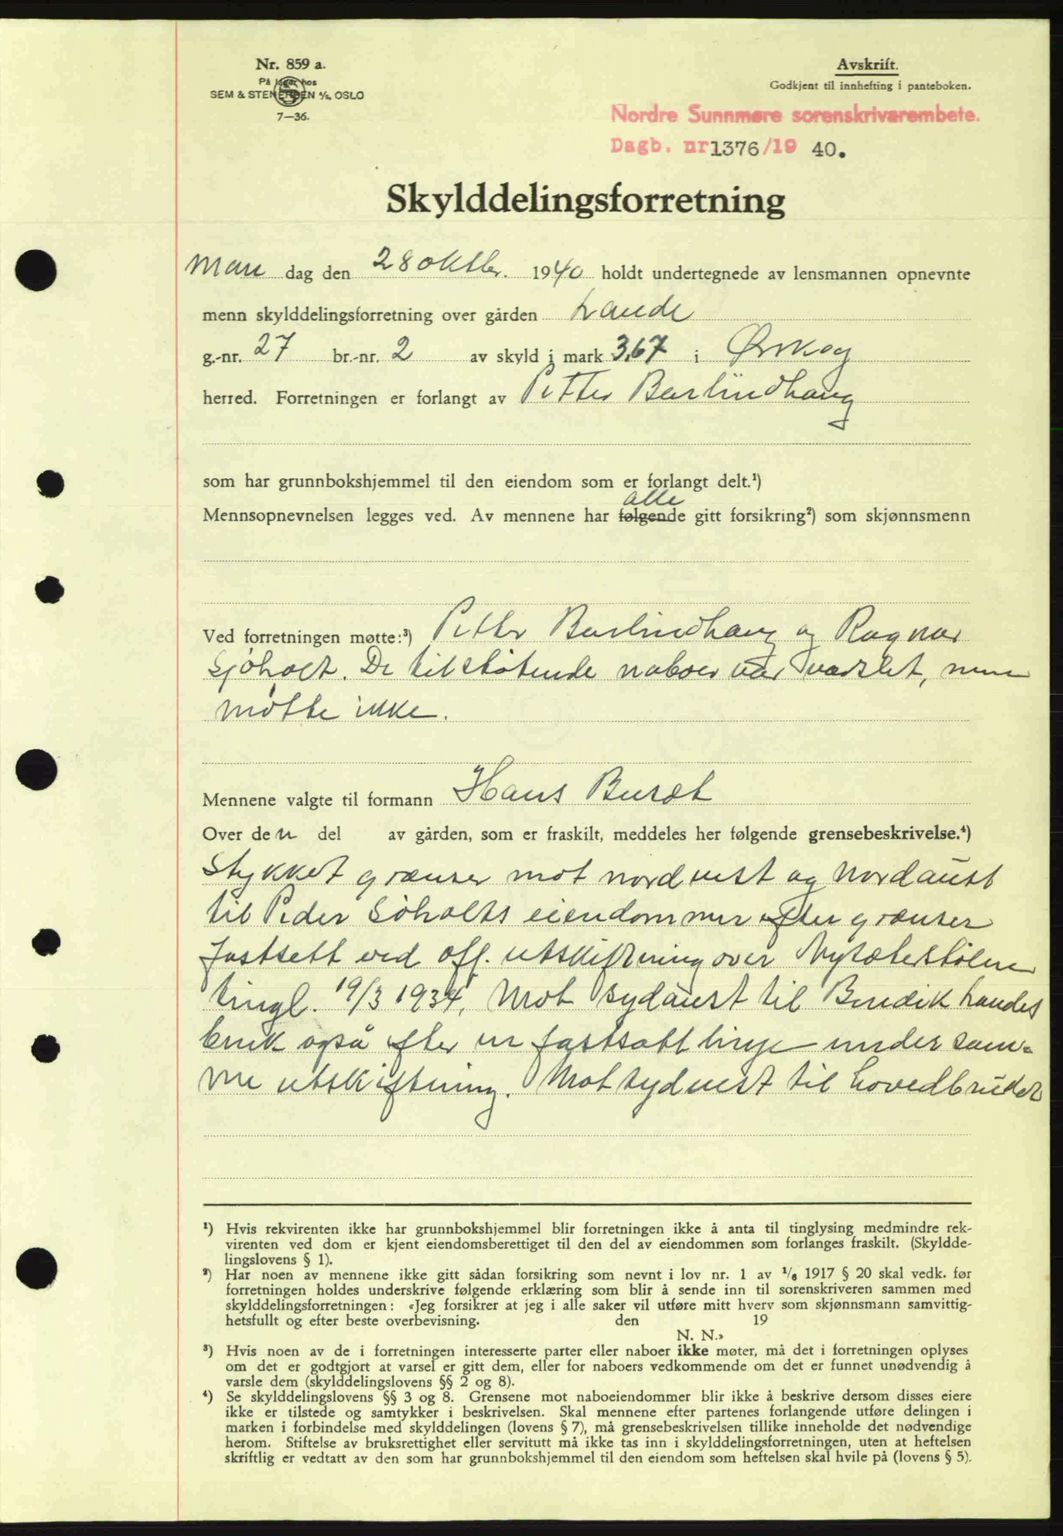 Nr. 859 a.
På lager hos
SEM & STENERSEN A/S, OSLO
7—36.
Avskrift.
Godkjent til innhefting i panteboken.
Nordre Sunnmøre sorenskriverembete.
Dagb. nr 1376/19 40.
Skylddelingsforretning
Man dag den 28 oktbr. 1940 holdt undertegnede av lensmannen opnevnte
menn skylddelingsforretning over gården Lande
g.-nr. 27 br.-nr. 2 av skyld i mark 3,67 i Ørskog
herred. Forretningen er forlangt av Petter Barlindhaug
som har grunnbokshjemmel til den eiendom som er forlangt delt.¹)
alle
Mennsopnevnelsen legges ved. Av mennene har følgende gitt forsikring²) som skjønnsmenn
Ved forretningen møtte:³) Petter Barlindhaug og Ragnar
Sjøholt. De tilstøtende naboer var varslet, men
møtte ikke.
Mennene valgte til formann Hans
Over den del av gården, som er fraskilt, meddeles her følgende grensebeskrivelse.⁴)
Stykket grenser mot nordvest og nordaust
til Peder Søholts eiendommer efter grenser
fastsett ved off. utskiftning over Nysæterstølen
tingl. 19/3 1934. Mot sydaust til Bendik Landes
bruk også efter en fastsatt linje under sam-
me utskiftning. Mot sydvest til hovedbruket
¹) Hvis rekvirenten ikke har grunnbokshjemmel blir forretningen ikke å anta til tinglysing medmindre rek-
virenten ved dom er kjent eiendomsberettiget til den del av eiendommen som forlanges fraskilt. (Skyldde-
lingslovens § 1).
²) Har noen av mennene ikke gitt sådan forsikring som nevnt i lov nr. 1 av 1/6 1917 § 20 skal vedk. før
forretningen holdes underskrive følgende erklæring som blir å sende inn til sorenskriveren sammen med
skylddelingsforretningen: «Jeg forsikrer at jeg i alle saker vil utføre mitt hverv som skjønnsmann samvittig-
hetsfullt og efter beste overbevisning. den 19
N. N.»
³) Hvis noen av de i forretningen interesserte parter eller naboer ikke møter, må det i forretningen oplyses
om det er godtgjort at varsel er gitt dem, eller for naboers vedkommende om det er funnet unødvendig å
varsle dem (skylddelingslovens §§ 2 og 8).
⁴) Se skylddelingslovens §§ 3 og 8. Grensene mot naboeiendommer blir ikke å beskrive dersom disses eiere
ikke er tilstede og samtykker i beskrivelsen. Skal mennene efter partenes forlangende utføre delingen i
marken i forbindelse med skylddelingen (lovens § 7), må grensebeskrivelsen tillike inneholde det nødvendige
herom. Stiftelse av bruksrettighet eller servitutt må ikke tas inn i skylddelingsforretningen, uten at heftelsen
skriftlig er vedtatt av den som har grunnbokshjemmel til den eiendom som heftelsen skal hvile på (lovens § 5).